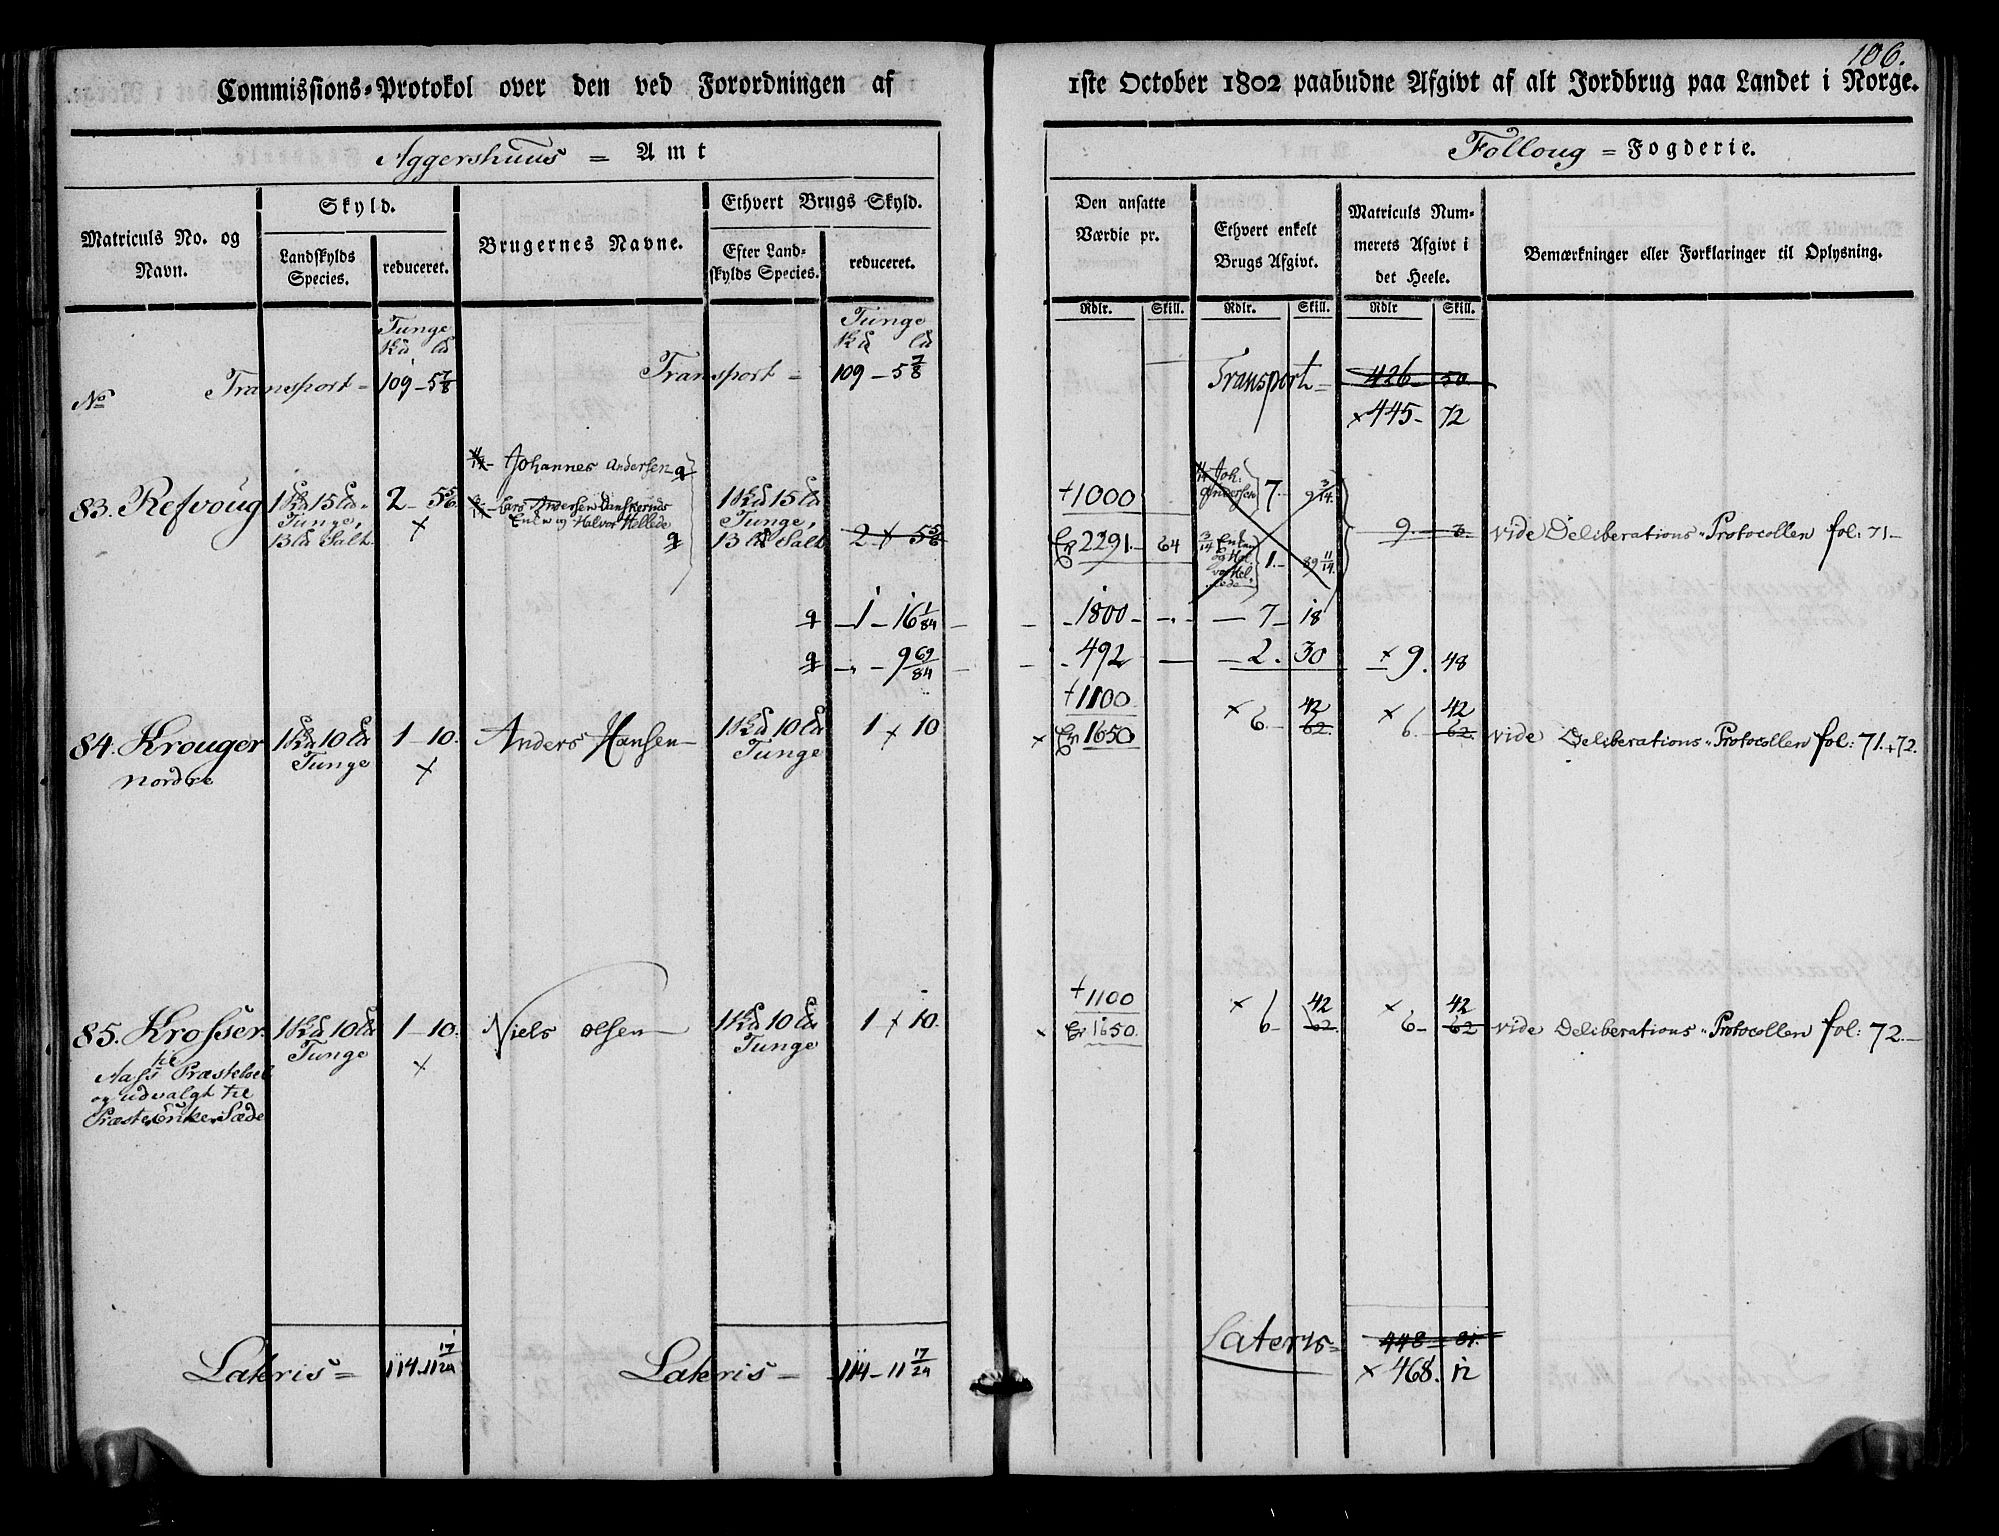 106.
Commissions-Protokol over den ved Forordningen af 1ste October 1802 paabudne Afgivt af alt Jordbrug paa Landet i Norge.
Aggershuus = Amt
Folloug = Fogderie.
Matriculs No. og Navn.
Skyld.
Landskylds Species.
reduceret.
Brugernes Navne.
Ethvert Brugs Skyld.
Efter Landskylds Species.
reduceret.
Den ansatte Værdie pr.
Rdlr. Skill.
Ethvert enkelt Brugs Afgivt.
Rdlr. Skill.
Matriculs Nummerets Afgivt i det Heele.
Rdlr Skill.
Bemærkninger eller Forklaringer til Oplysning.
Tunge
Tunge
No
Transport = 109 - 5 7/8
Transport = 109 - 5 7/8
Transport = 426 - 50.
× 445 - 72
83. Refvoug
2 - 5 5/6
×
Johannes Andersen
Lars Andersen
Enke og Halvor Hellede
Tunge,
Salt
Tunge,
Salt
2 × 5 5/6
+ 1000
2291 - 64
Joh: Andersen 7 - 9 3/14.
1 - 89 11/14.
9 -
vide Deliberations-Protocollen fol: 71 -
1 - 16 1/84
1800 -
7 - 18
9 69/84
492 -
2. 30
× 9. 48
84. Krouger
nordre
Tunge
1 - 10.
×
Anders Hansen
Tunge
1 × 10
+ 1100
× 1650
× 6 - 42
62
× 6. 42
62.
vide Deliberations-Protocollen fol: 71. + 72.
85. Krosser
til
Aass Præsteboel
og udvalgt til
Præste Enke Sæde
Tunge
1 - 10.
×
Niels Olsen
Tunge
1 × 10.
+ 1100
× 1650.
× 6 - 42
62
× 6 - 42
62
vide Deliberations-Protocollen fol: 72. -
Lateris = 114 - 11 17/24
Lateris = 114 - 11 17/24
Lateris =
× 468. 12